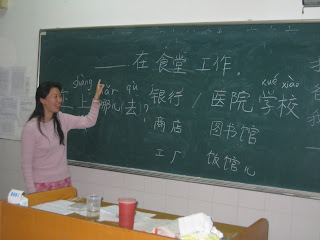 ____ 在食堂工作。
shàng nǎr qù xué xiào
在上哪儿去? 银行 / 医院 学校
商店 图书馆
工厂 饭馆儿